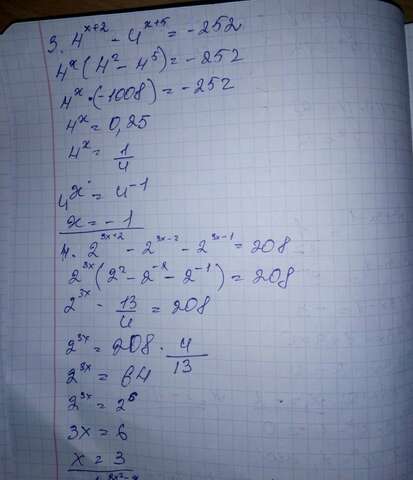 3. 4^{x+2} - 4^{x+5} = -252
4^x (4^2 - 4^5) = -252
4^x · (-1008) = -252
4^x = 0,25
4^x = 1/4
4^x = 4^{-1}
x = -1
4. 2^{3x+2} - 2^{3x-2} - 2^{3x-1} = 208
2^{3x} (2^2 - 2^{-2} - 2^{-1}) = 208
2^{3x} · 13/4 = 208
2^{3x} = 208 · 4/13
2^{3x} = 64
2^{3x} = 2^6
3x = 6
x = 3